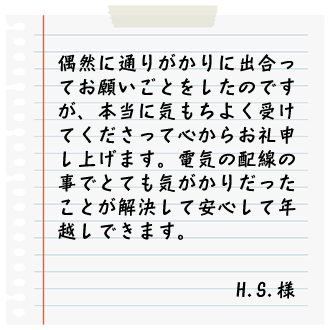 偶然に通りがかりに出合っ
てお願いごとをしたのです
が、本当に気もちよく受け
てくださって心からお礼申
し上げます。電気の配線の
事でとても気がかりだった
ことが解決して安心して年
越しできます。
H.S.様